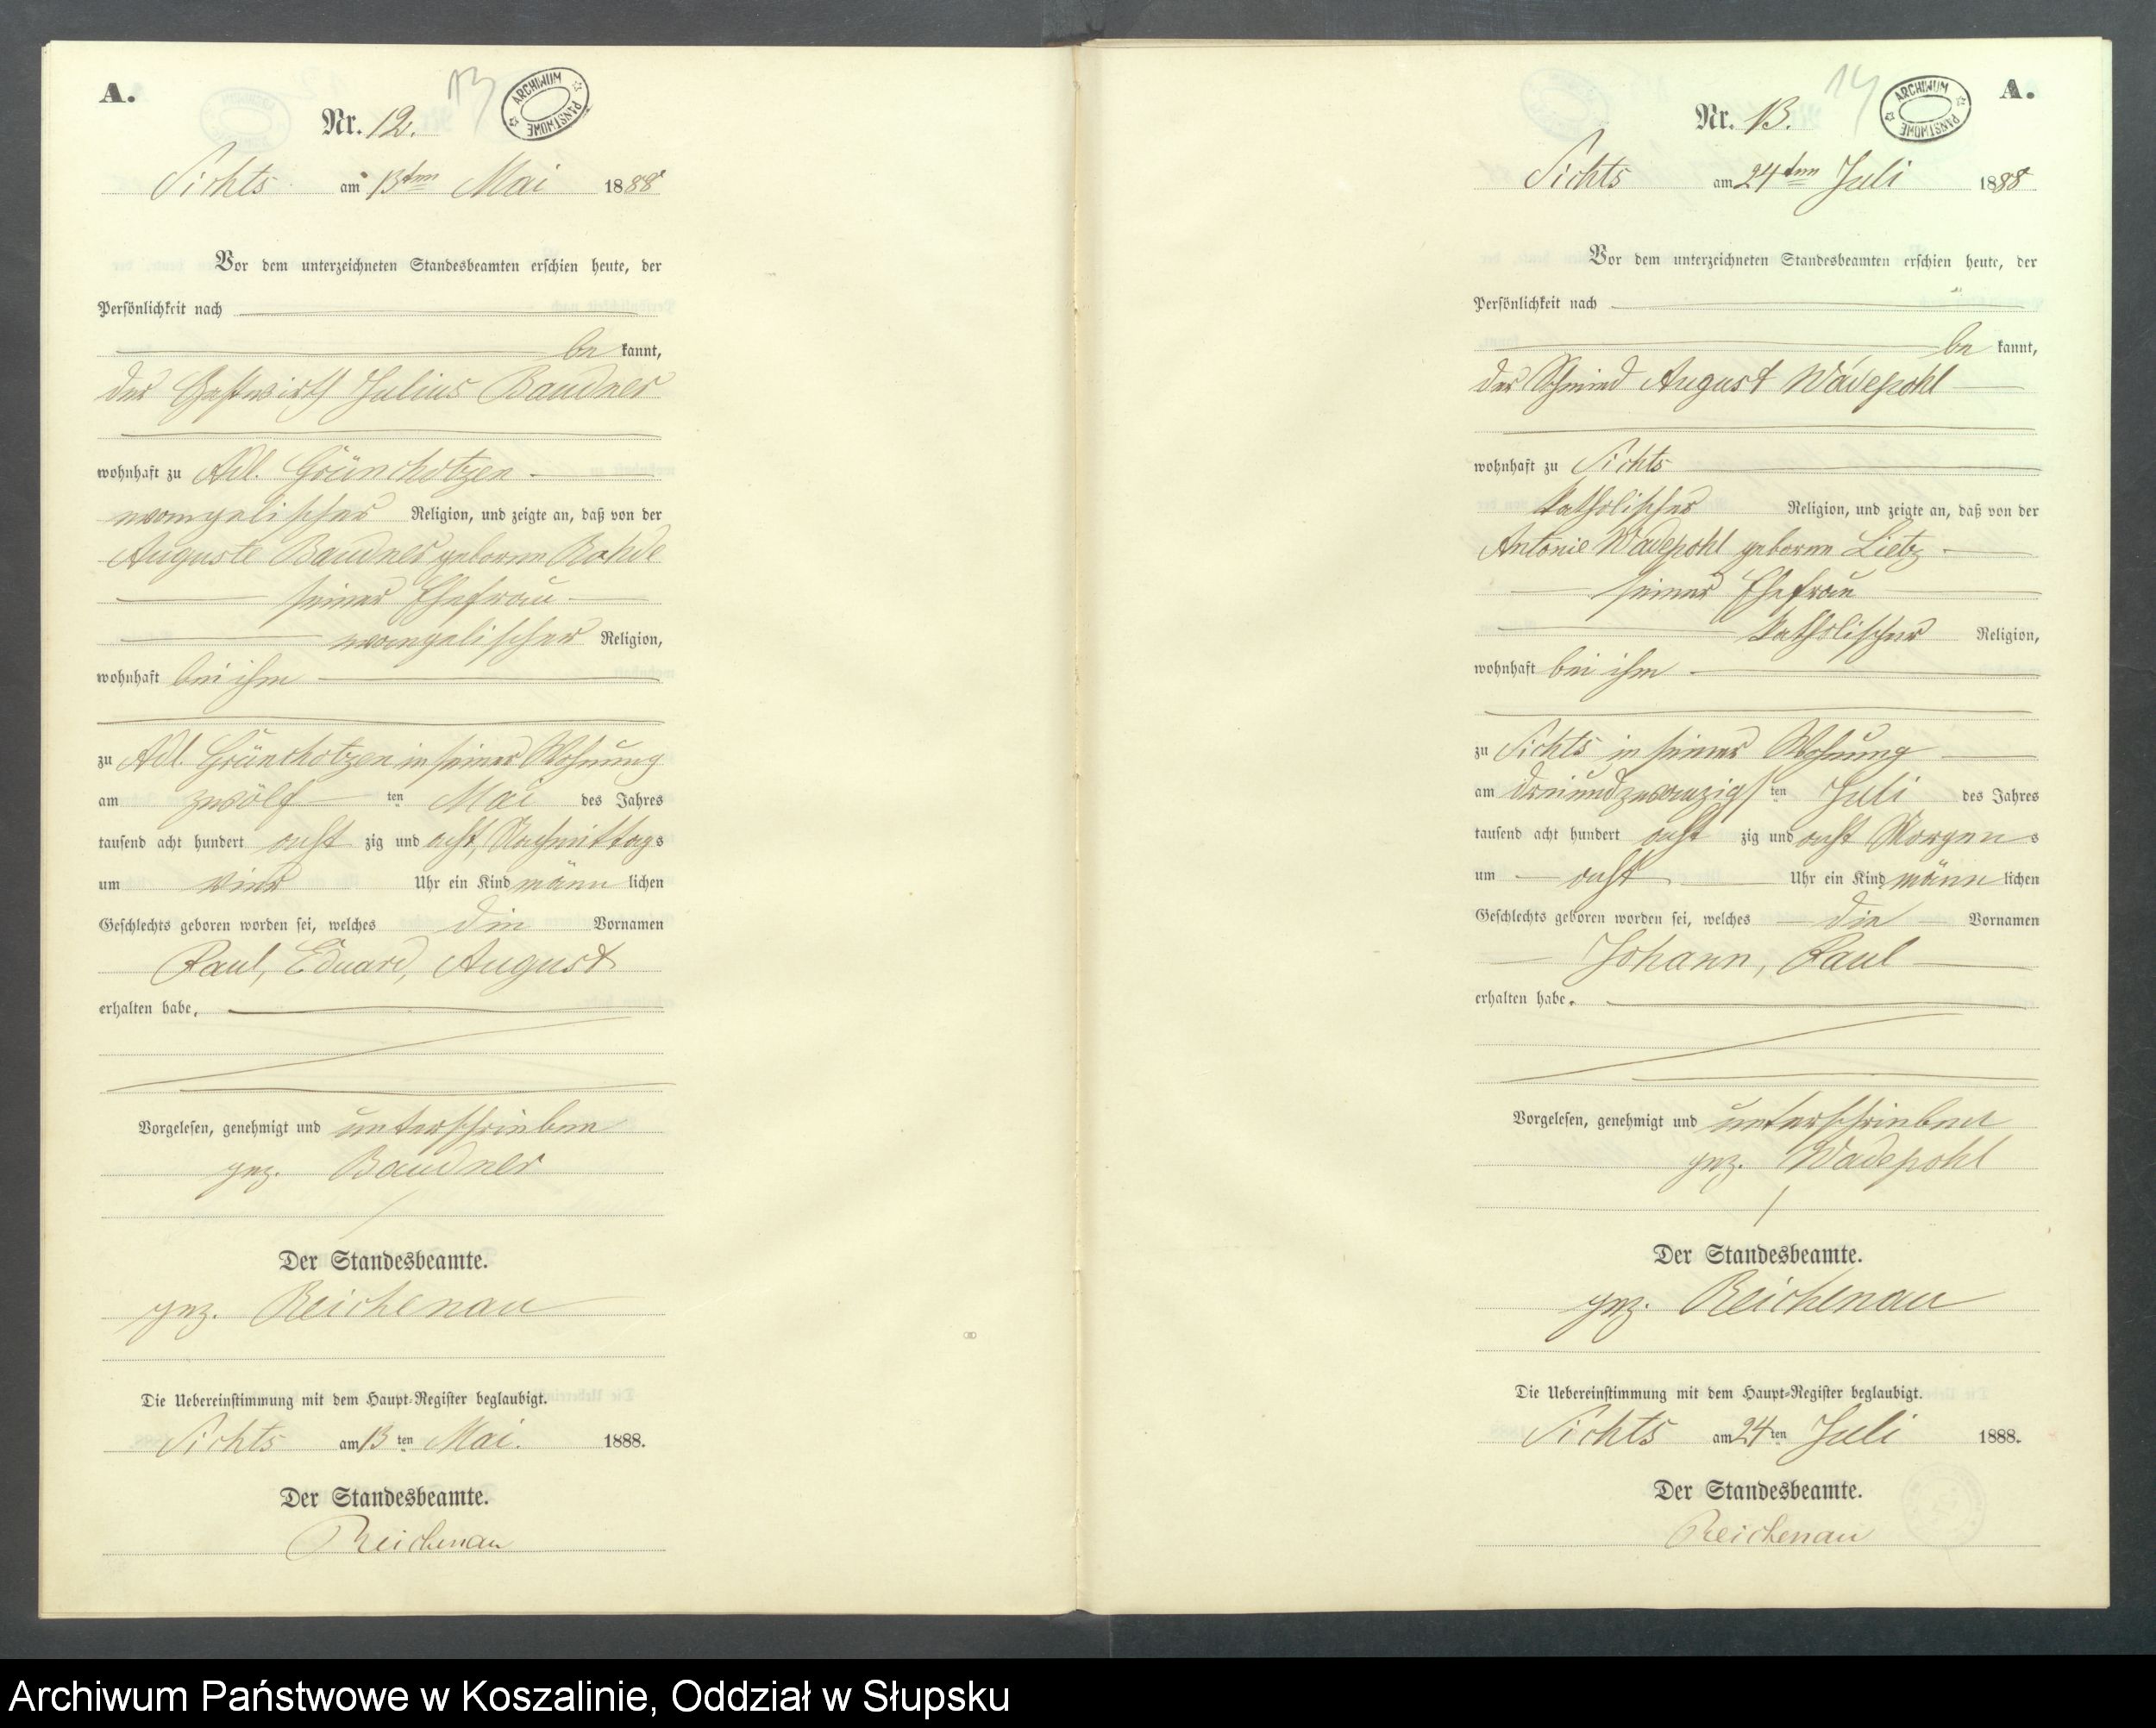 A.
13
ARCHIWUM PAŃSTWOWE
Nr. 12.
Sichts am 13ten Mai 1888
Vor dem unterzeichneten Standesbeamten erschien heute, der
Persönlichkeit nach
be kannt,
der Gastwirth Julius Baudner
wohnhaft zu Adl. Grünchotzen
evangelischer Religion, und zeigte an, daß von der
Auguste Baudner geborenen Rohde
seiner Ehefrau
evangelischer Religion,
wohnhaft bei ihm
zu Adl. Grünchotzen in seiner Wohnung
am zwölf ten Mai des Jahres
tausend acht hundert acht zig und acht, Nachmittags
um vier Uhr ein Kind männ lichen
Geschlechts geboren worden sei, welches die Vornamen
Paul, Eduard, August
erhalten habe.
Vorgelesen, genehmigt und unterschrieben
gez. Baudner
Der Standesbeamte.
gez. Reichenau
Die Uebereinstimmung mit dem Haupt-Register beglaubigt.
Sichts am 13 ten Mai. 1888.
Der Standesbeamte.
Reichenau
14
ARCHIWUM PAŃSTWOWE
A.
Nr. 13.
Sichts am 24ten Juli 1888
Vor dem unterzeichneten Standesbeamten erschien heute, der
Persönlichkeit nach
be kannt,
der Schmied August Wadepohl
wohnhaft zu Sichts
katholischer Religion, und zeigte an, daß von der
Antonie Wadepohl geborene Lietz
seiner Ehefrau
katholischer Religion,
wohnhaft bei ihm
zu Sichts in seiner Wohnung
am dreiundzwanzigs ten Juli des Jahres
tausend acht hundert acht zig und acht Morgen s
um acht Uhr ein Kind männ lichen
Geschlechts geboren worden sei, welches die Vornamen
Johann, Paul
erhalten habe.
Vorgelesen, genehmigt und unterschrieben
gez. Wadepohl
Der Standesbeamte.
gez. Reichenau
Die Uebereinstimmung mit dem Haupt-Register beglaubigt.
Sichts am 24 ten Juli 1888.
Der Standesbeamte.
Reichenau
Archiwum Państwowe w Koszalinie, Oddział w Słupsku